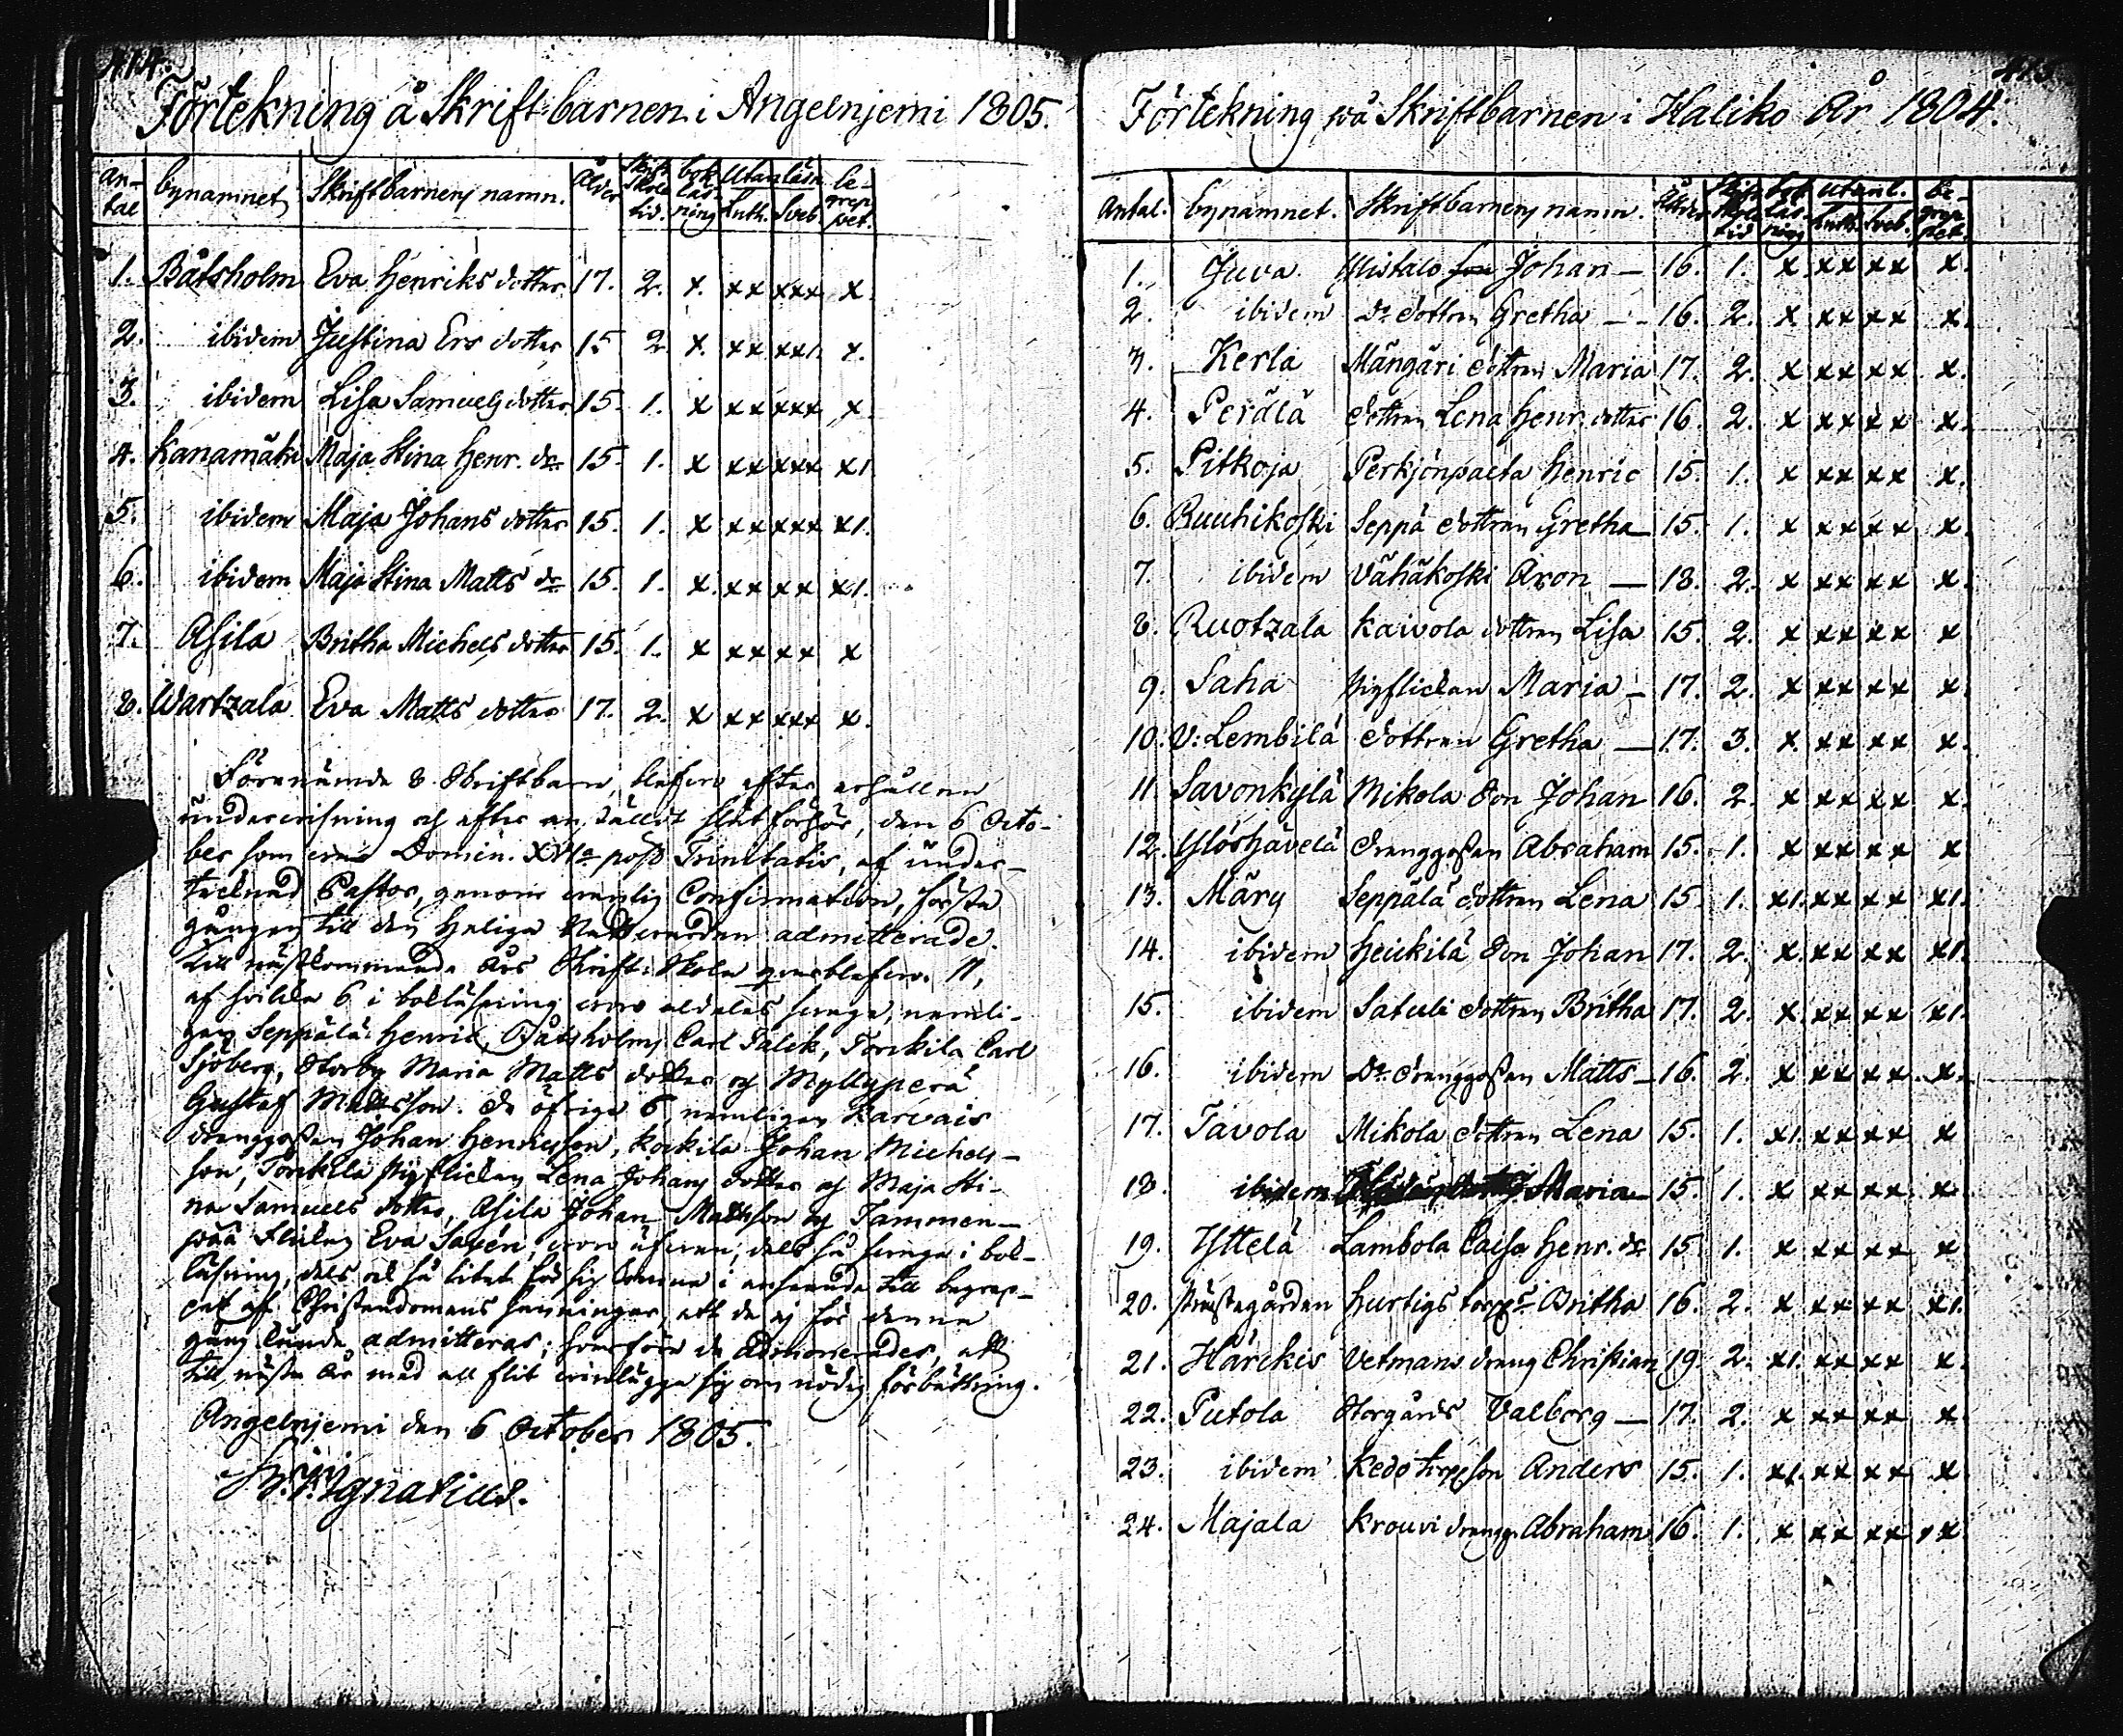 414.
Förtekning å Skrift-barnen i Angelnjemi 1805.
an-tal bynamnet Skriftbarnens namn. Ålder Skrift Skole tid. bok läsning Utanläsn. Luth. Sveb. be-grep pet.
1. Båtsholm Eva Henriks dotter 17. 2. x. xx xxx x.
2. ibidem Justina Ers dotter 15 2. x. xx xx1. x.
3. ibidem Lisa Samuels dotter 15. 1. x xx xxx x.
4. Kanamäki Maja Stina Henr. dr 15. 1. x xx xxx x1
5. ibidem Maja Johans dotter 15. 1. x xx xxx x1.
6. ibidem Maja Stina Matts dr 15. 1. x. xx xx x1.
7. Asila Britha Michels dotter 15. 1. x xx xx x
8. Wartzala Eva Matts dotter 17. 2. x xx xxx x.
Förenämde 8. Skriftbarn, blefvo efter erhållen
undervisning och efter anstäldt slutförhör, den 6 Octo-
ber som var Domin. XVIa post Trinitatis, af under-
tecknad Pastor, genom vanlig Confirmation, första
gången till den heliga Nattvarden admitterade.
Till nästkommande års Skrift-Skola qvarblefvo 11,
af hvilka 6 i bokläsning voro aldeles svaga, nemli-
gen Seppälä Henric, Båtsholms Carl Palck, Torkila Carl
Sjöberg, Storby Maria Matts dotter och Myllyperä
Gustaf Matsson. De öfrige 6 nemligen Karvais
drenggossen Johan Henricsson, Kokila Johan Michels-
son, Torkila pigflickan Lena Johans dotter och Maja Sti-
na Samuels dotter, Asila Johan Mattsson och Tammen-
pää flickan Eva Savén, voro äfven, dels så svaga i bok-
läsning, dels ock så litet försigkomne i anseende till begrep-
pet af Christendomens sanningar, att de ej för denna
gång kunde admitteras; hvarföre de admonerades, att
till nästa år med all flit vinlägga sig om nödig förbättring.
Angelnjemi den 6 October 1805.
Ignatius.
415
Förtekning på Skriftbarnen i Haliko År 1804.
Antal. bynamnet. Skriftbarnens namn. Ålder Skrift Skole tid bok läs ning utanl. Luth. Sveb. be-grep pet.
1. Juva Ylistalo son Johan — 16. 1. x xx xx x.
2. ibidem Do dottren Gretha — 16. 2. x xx xx x.
3. Kerla Mängäri dottren Maria 17. 2. x xx xx x.
4. Perälä dottren Lena Henr. dotter 16. 2. x xx xx x.
5. Pitkoja Perkjönpaeta Henric 15. 1. x xx xx x.
6. Ruuhikoski Seppä dottren Gretha 15. 1. x xx xx x.
7. ibidem Vähäkoski Aron — 18. 2. x xx xx x.
8. Ruotzala Kaivola dottren Lisa 15. 2. x xx xx x
9. Saha pigflickan Maria — 17. 2. x xx xx x.
10. V: Lembilä dottren Gretha — 17. 3. x xx xx x.
11. Savonkylä Mikola Son Johan 16. 2. x xx xx x.
12. Ylöshävelä drenggossen Abraham 15. 1. x xx xx x
13. Märy Seppälä dottren Lena 15. 1. x1. xx xx x1.
14. ibidem Heickilä Son Johan 17. 2. x. xx xx x1.
15. ibidem Satuli dottren Britha 17. 2. x. xx xx x1.
16. ibidem Do drenggossen Matts — 16. 2. x xx xx x.
17. Tavola Mikola dottren Lena 15. 1. x1. xx xx x
18. ibidem Maria — 15. 1. x xx xx x
19. Yttelä Lambola Caisa Henr. dr 15 1. x xx xx x
20. Prästegården Hurtigs torps Britha 16. 2. x xx xx x1.
21. Härckis Vetmans dreng Christian 19. 2. x1. xx xx x.
22. Putola Storgårds Valborg — 17. 2. x xx xx x
23. ibidem Kedo torpson Anders 15. 1. x1. xx xx x
24. Majala Krouvi drengg. Abraham 16. 1. x xx xx x